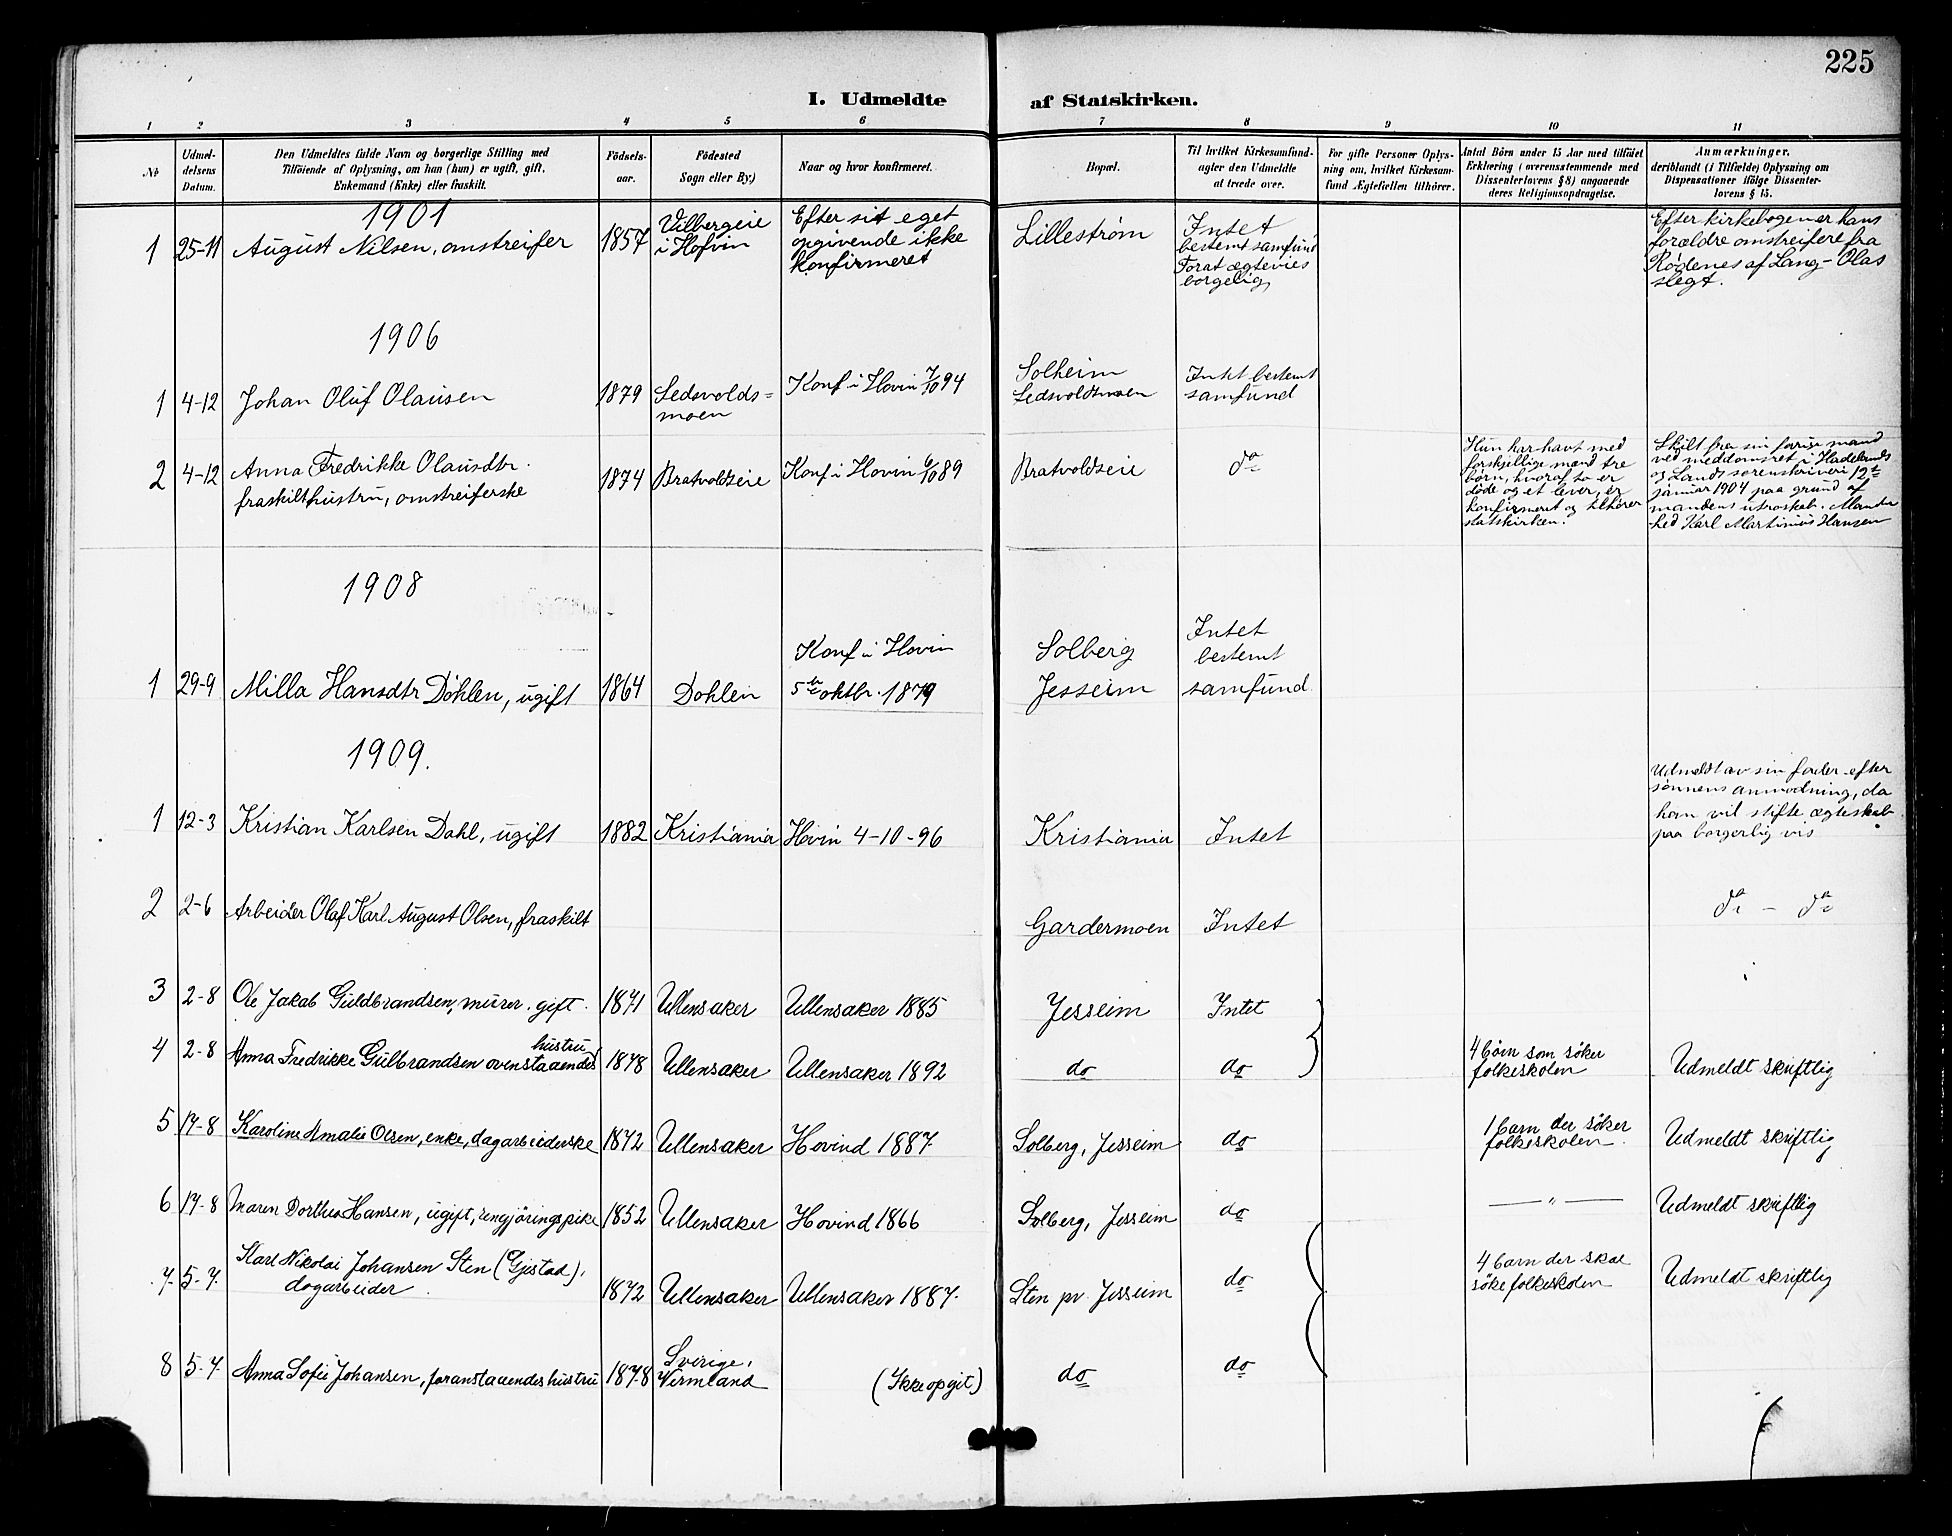 225
I. Udmeldte af Statskirken.
1 2 3 4 5 6 7 8 9 10 11
No
Udmel-
delsens
Datum.
Den Udmeldtes fulde Navn og borgerlige Stilling med
Tilføiende af Oplysning, om han (hun) er ugift, gift,
Enkemand (Enke) eller fraskilt.
Fødsels-
aar.
Fødested
Sogn eller By.)
Naar og hvor konfirmeret.
Bopæl.
Til hvilket Kirkesamfund-
agter den Udmeldte
at træde over.
For gifte Personer Oplys-
ning om, hvilket Kirkesam-
fund Ægtefællen tilhører.
Antal Börn under 15 Aar med tilføiet
Erklæring (overensstemmende med
Dissenterlovens § 8) angaaende
deres Religionsopdragelse.
Anmærkninger,
deriblandt (i Tilfælde) Oplysning om
Dispensationer ifølge Dissenter-
lovens § 15.
1901
1 25-11 August Nilsen, omstreifer 1857
Vilbergeie
i Hofvin
Efter sit eget
opgivende ikke
konfirmeret
Lillestrøm
Intet
bestemt samfund
For at ægtevies
borgelig
Efter kirkebogen er hans
forældre omstreifere fra
Rødenes af Lang-Olas
slegt.
1906
1 4-12 Johan Oluf Olausen 1879
Ledsvolds=
moen
Konf i Hovin 7/10 94
Solheim
Ledsvoldsmoen
Intet bestemt
samfund
2 4-12 Anna Fredrikke Olausdtr.
fraskilt hustru, omstreiferske
1874 Bratvoldseie Konf i Hovin 6/10 89 Bratvoldseie do
Hun har havt med
forskjellige mænd tre
börn, hvoraf to er
døde og et lever, er
konfirmeret og tilhører
statskirken.
Skilt fra sin forrige mand
ved meddomsret i Hadelands
og Lands sorenskriveri 12te
januar 1904 paa grund af
mandens utroskab. Manden
hed Karl Martinius Hansen
1908
1 29-9 Milla Hansdtr Döhlen, ugift 1864 Dohlen
Konf i Hovin
5te oktbr. 1879
Solberg
Jesseim
Intet
bestemt
samfund
1909.
1 12-3 Kristian Karlsen Dahl, ugift 1882 Kristiania Hovin 4-10-96 Kristiania Intet
Udmeldt av sin fader efter
sønnens anmodning, da
han vil stifte ægteskab
paa borgerlig vis
2 2-6 Arbeider Olaf Karl August Olsen, fraskilt Gardermoen Intet do - do
3 2-8 Ole Jakob Guldbrandsen, murer. gift. 1871 Ullensaker Ullensaker 1885 Jesseim Intet
4 2-8 Anna Fredrikke Gulbrandsen ovenstaaendes hustru 1878 Ullensaker Ullensaker 1892 do do
4 börn som söker
folkeskolen
Udmeldt skriftlig
5 17-8 Karoline Amalie Olsen, enke, dagarbeiderske 1872 Ullensaker Hovind 1887 Solberg, Jesseim do
1 barn der söker
folkeskolen.
Udmeldt skriftlig
6 17-8 Maren Dorthea Hansen, ugift, rengjöringspike 1852 Ullensaker Hovind 1866 Solberg, Jesseim do — „ — Udmeldt skriftlig
7. 5-7. Karl Nikolai Johansen Sten (Gjestad),
dagarbeider
1872 Ullensaker Ullensaker 1887. Sten pr. Jesseim do
4 barn der skal
söke folkeskolen
Udmeldt skriftlig
8 5-7. Anna Sofie Johansen, foranstaaendes hustru 1878
Sverige,
Vermland
(Ikke opgit) do do